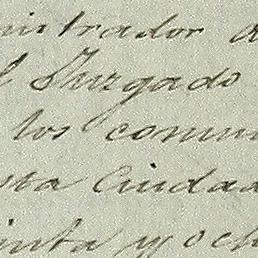 nistrador d
l Juzgado
los comun
sta Ciudad
inta y och